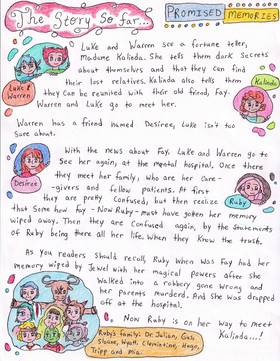 The Story So far...
PROMISED
MEMORIES
Luke and Warren see a fortune teller,
Madame Kalinda. She tells them dark Secrets
about themselves. and that they can find
their lost relatives. Kalinda also tells them
they can be reunited with their old friend, Fay.
Warren and Luke go to meet her.
Luke &
Warren
Kalinda
Warren has a friend named Desiree, Luke isn't too
Sure about.
With the news about Fay. Luke and Warren go to
See her again, at the mental hospital. Once there
they meet her family, who are her care-
-givers and fellow patients. At first
they are pretty confused, but then realize
that some how Fay - Now Ruby - must have gotten her memory
wiped away. Then they are Confused again, by the statements
of Ruby being there all her life. When they know the truth.
Desiree
Ruby
As you readers should recall, Ruby when was Fay had her
memory wiped by Jewel with her
magical powers after she
walked into a robbery gone wrong and
her parents murderd. And she was dropped
off at the hospital.
Now Ruby is on her way to meet
Kalinda...!
Ruby's family: Dr. Julian, Gab,
Sloane, Wyatt, Clementine, Hugo,
Tripp and Mia.